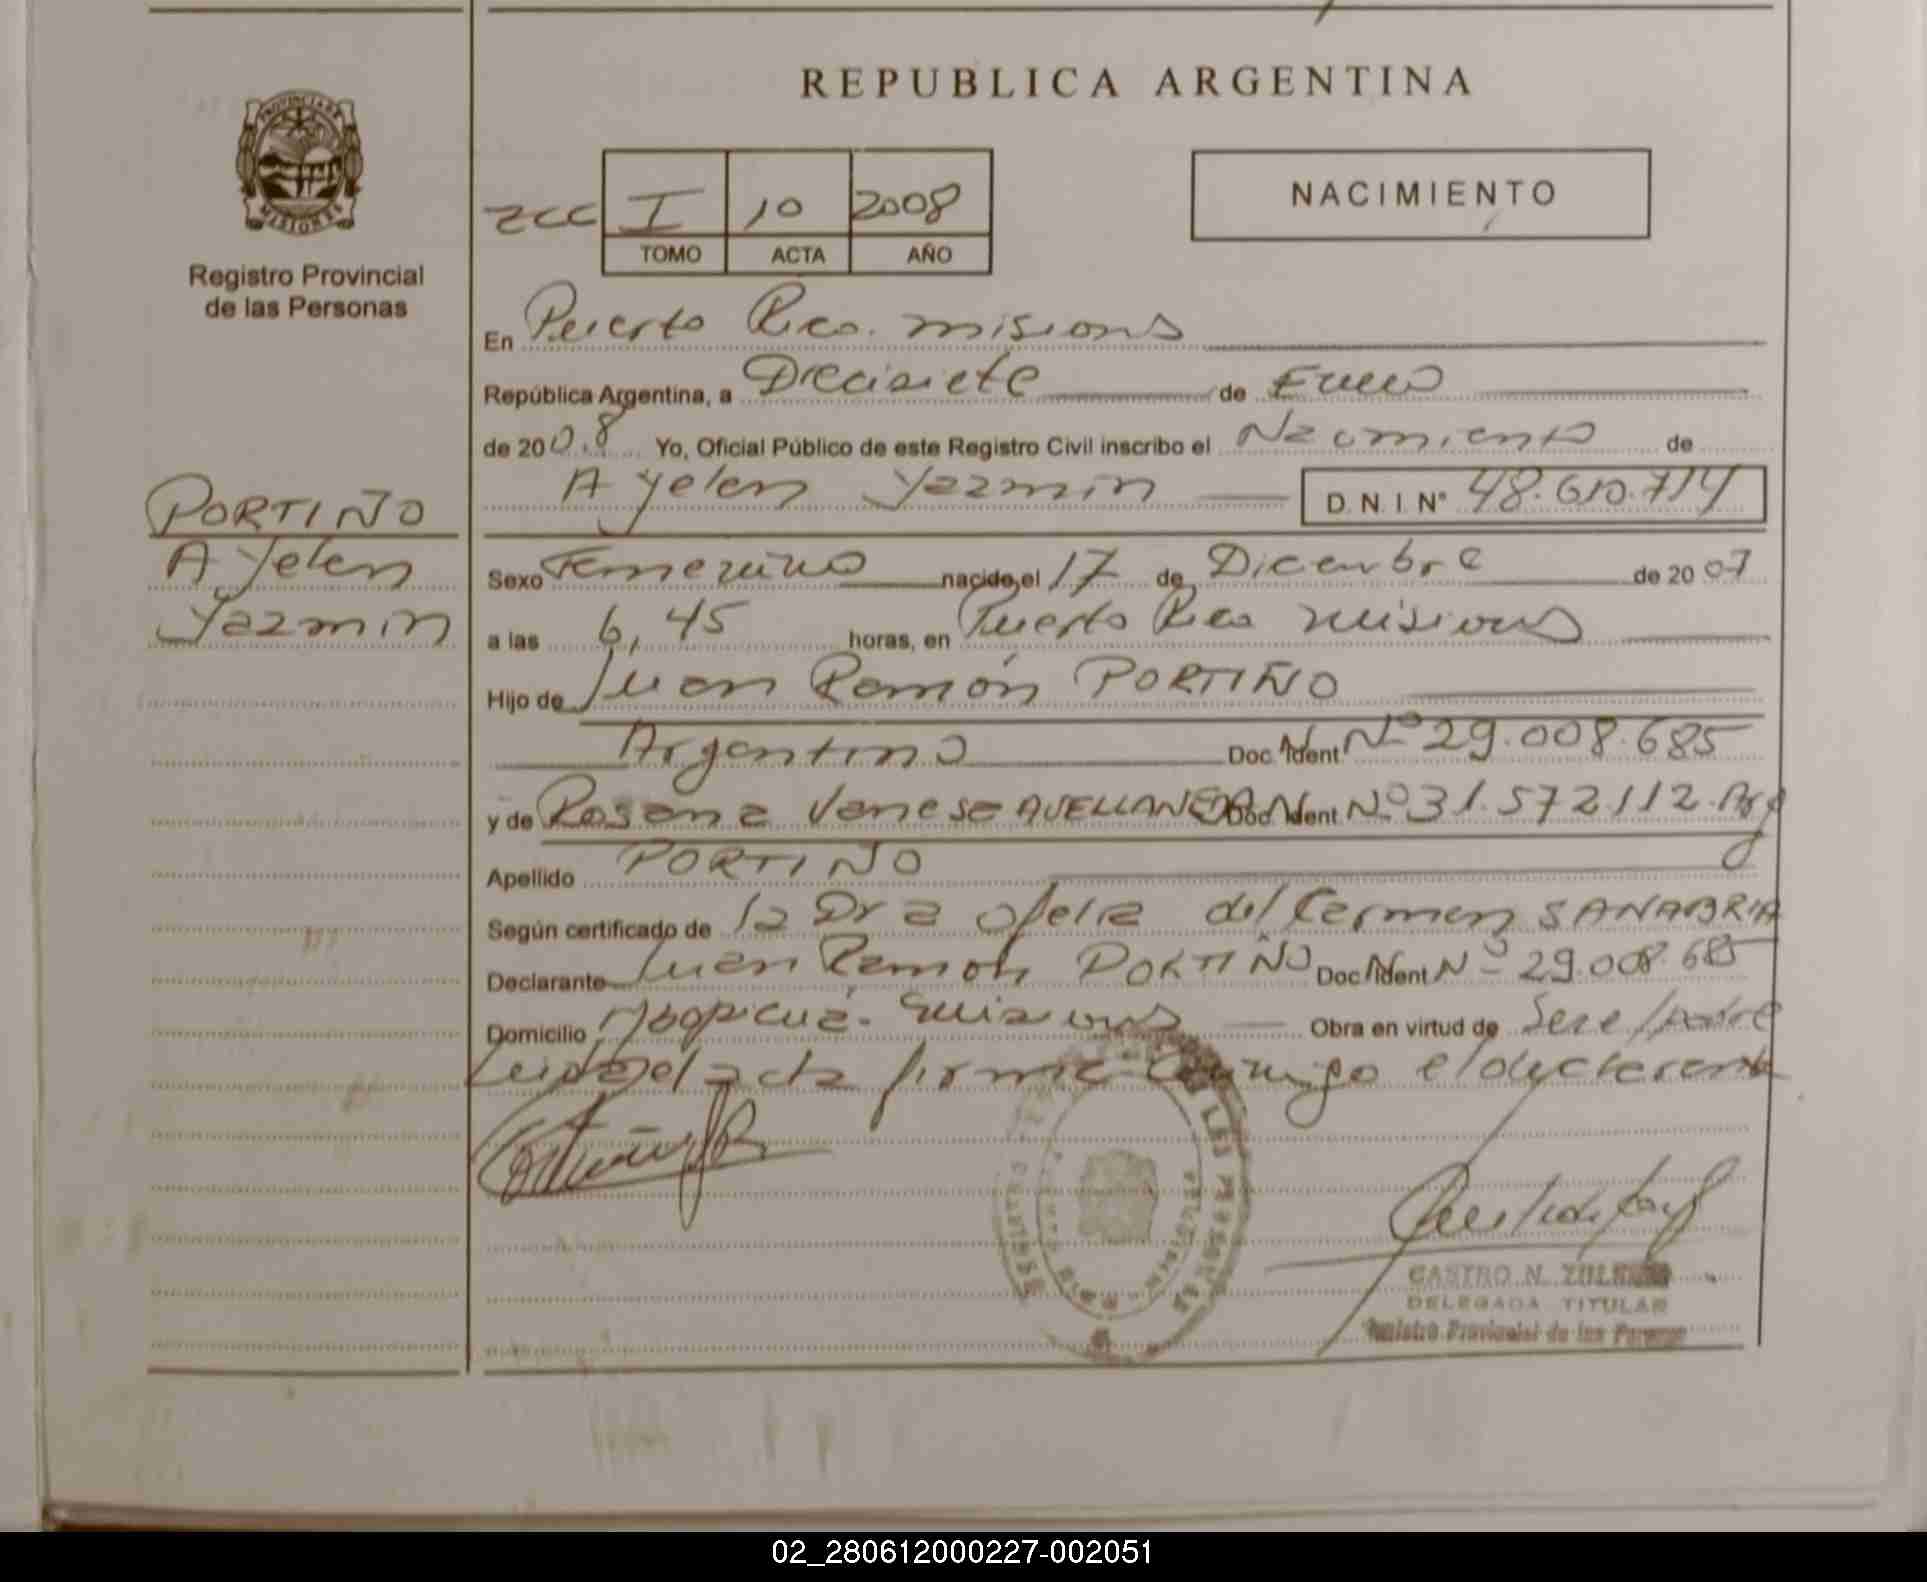 REPUBLICA ARGENTINA
PROVINCIA DE
MISIONES
Registro Provincial
de las Personas
zcc I 10 2008
TOMO ACTA AÑO
NACIMIENTO
En Puerto Rico. misiones
República Argentina, a Diecisiete de Enero
de 2008 Yo, Oficial Público de este Registro Civil inscribo el Nacimiento de
Ayelen Yazmin D. N. I. Nº 48.610.714
PORTIÑO
Ayelen
Yazmin
Sexo Femenino nacido el 17 de Diciembre de 2007
a las 6,45 horas, en Puerto Rico misiones
Hijo de Juan Ramón PORTIÑO
Argentino Doc. Ident Nº 29.008.685
y de Rosana Vanesa AVELLANEDA Doc. Ident Nº 31.572.112. Arg
Apellido PORTIÑO
Según certificado de la Dra Ofelia del Carmen SANABRIA
Declarante Juan Ramón PORTIÑO Doc. Ident Nº 29.008.685
Domicilio Mbopicuá. misiones Obra en virtud de Ser el padre
Leida el acta firma conmigo el declarante
CASTRO N. ZULEMA
DELEGADA TITULAR
Registro Provincial de las Personas
02_280612000227-002051